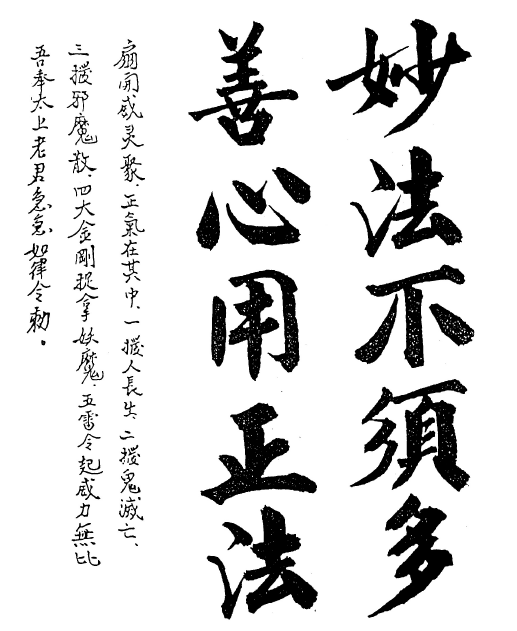 妙法不須多
善心用正法
扇開威灵聚、正氣在其中、一撥人長生、二撥鬼滅亡、
三撥邪魔散、四大金剛捉拿妖魔、五雷令起威力無比
吾奉太上老君急急如律令勅。